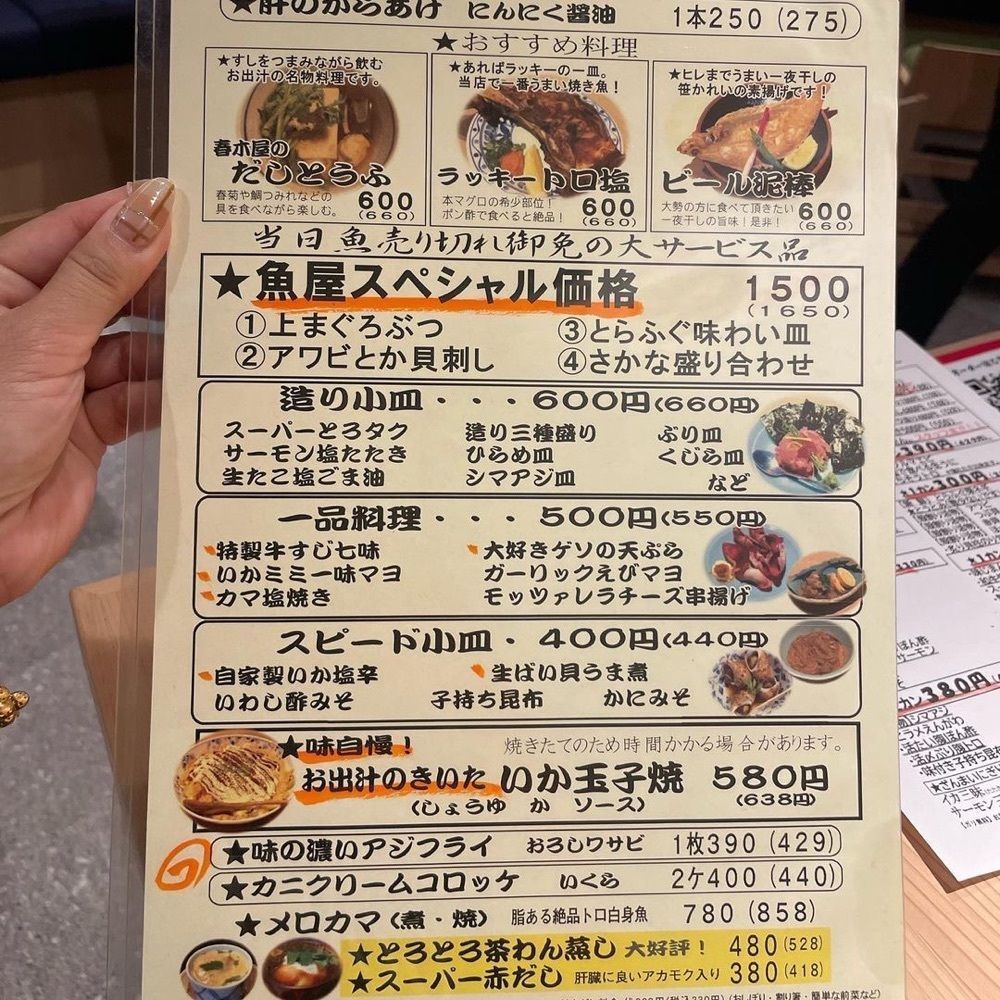 ★肝のからあげ にんにく醤油 1本250(275)
★おすすめ料理
★すしをつまみながら飲む
お出汁の名物料理です。
春木屋の
だしとうふ
春菊や鯛つみれなどの
具を食べながら楽しむ。
600
(660)
★あればラッキーの一皿。
当店で一番うまい焼き魚!
ラッキートロ塩
本マグロの希少部位!
ポン酢で食べると絶品!
600
(660)
★ヒレまでうまい一夜干しの
笹かれいの素揚げです!
ビール泥棒
大勢の方に食べて頂きたい
一夜干しの旨味!是非!
600
(660)
当日魚売り切れ御免の大サービス品
★魚屋スペシャル価格 1500
(1650)
①上まぐろぶつ ③とらふぐ味わい皿
②アワビとか貝刺し ④さかな盛り合わせ
造り小皿・・・600円(660円)
スーパーとろタク 造り三種盛り ぶり皿
サーモン塩たたき ひらめ皿 くじら皿
生たこ塩ごま油 シマアジ皿 など
一品料理・・・500円(550円)
特製牛すじ七味 大好きゲソの天ぷら
いかミミ一味マヨ ガーリックえびマヨ
カマ塩焼き モッツァレラチーズ串揚げ
スピード小皿・400円(440円)
自家製いか塩辛 生ばい貝うま煮
いわし酢みそ 子持ち昆布 かにみそ
★味自慢! 焼きたてのため時間かかる場合があります。
お出汁のきいた いか玉子焼 580円
(しょうゆ か ソース) (638円)
★味の濃いアジフライ おろしワサビ 1枚390(429)
★カニクリームコロッケ いくら 2ケ400(440)
★メロカマ(煮・焼) 脂ある絶品トロ白身魚 780(858)
★とろとろ茶わん蒸し 大好評! 480(528)
★スーパー赤だし 肝臓に良いアカモク入り 380(418)
(おしぼり・割り箸・簡単な前菜など)
390円
300円
カン380円
シマアジ
えんがわ
味付き子持ち昆布
イカ三昧
サーモン